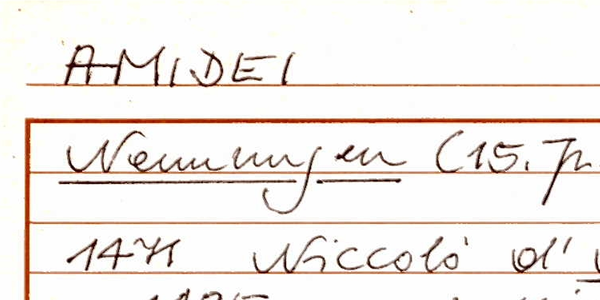 AMIDEI
Nennungen (15. Jh.
1471 Niccolò d'